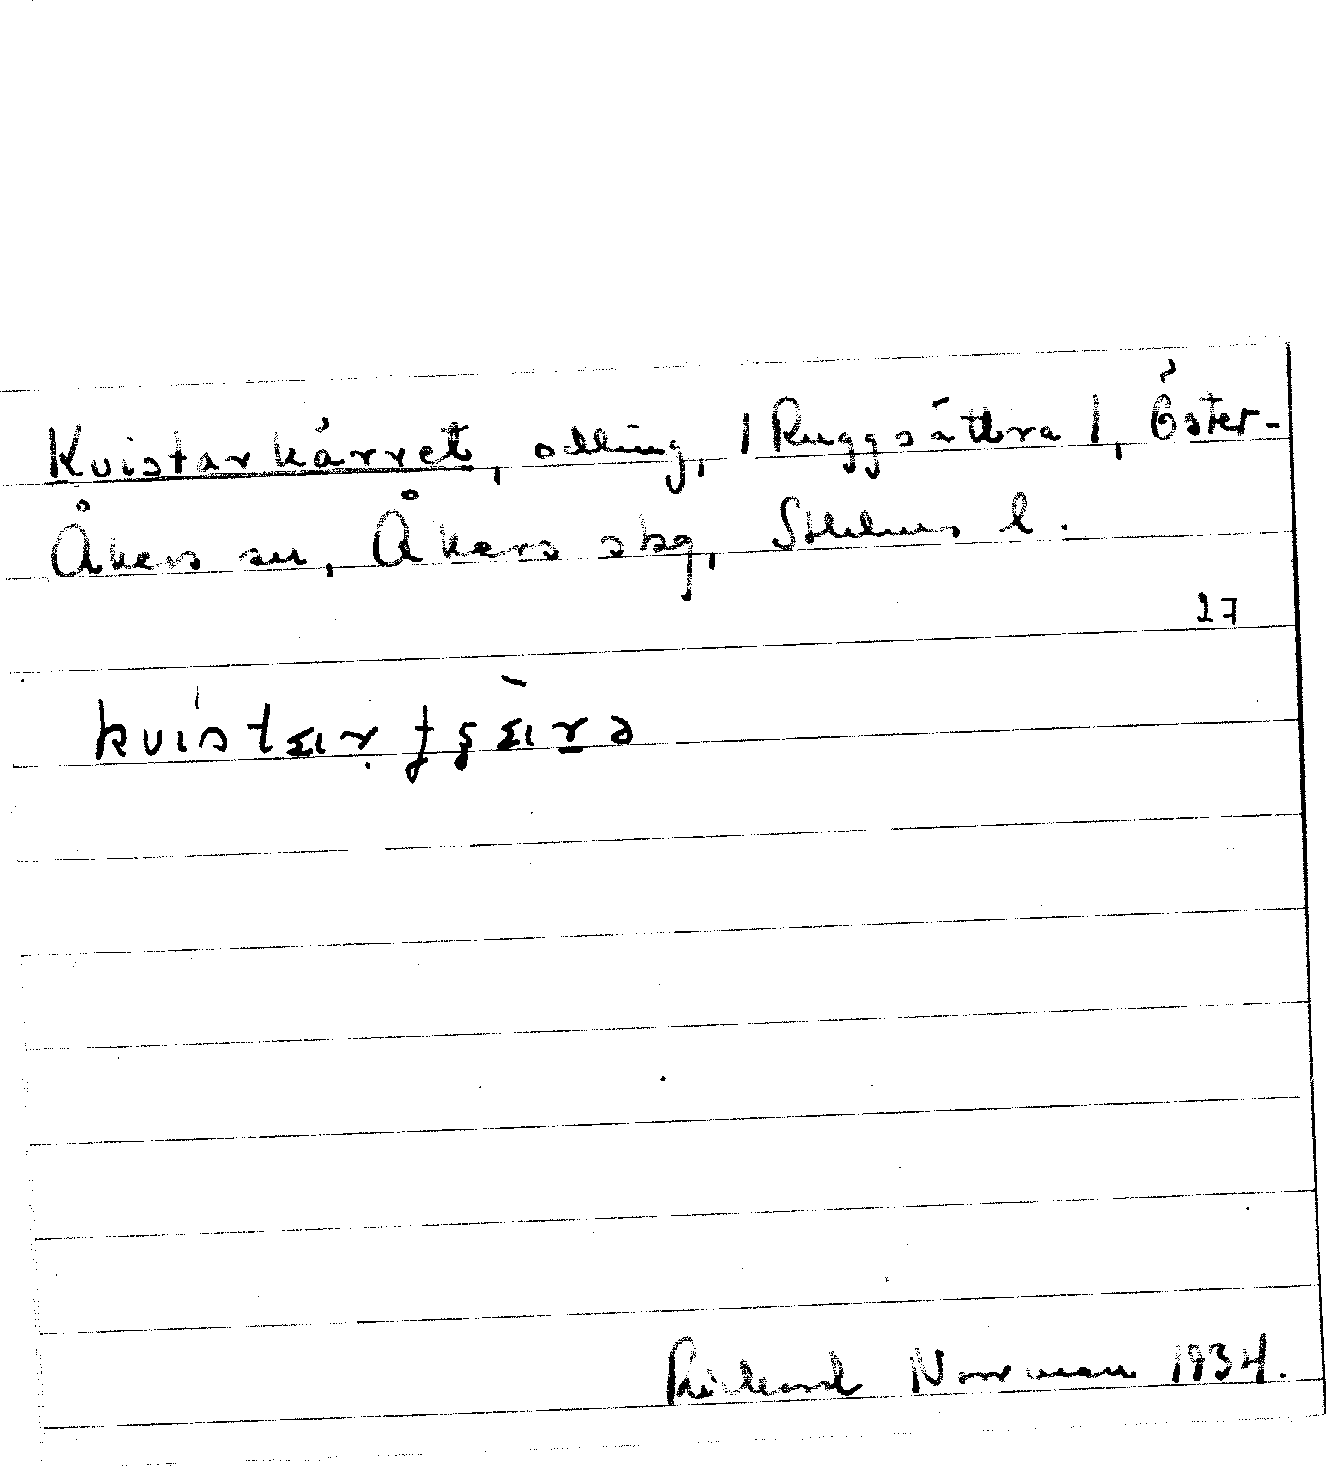 Kvistarkärret, odling, /Ruggsättra/, Öster-
Åkers sn, Åkers skg, Sthlms l.
27
kvistɑıṛ ƫʂɑ̀ıɤ̲ə
Rickard Norrman 1934.